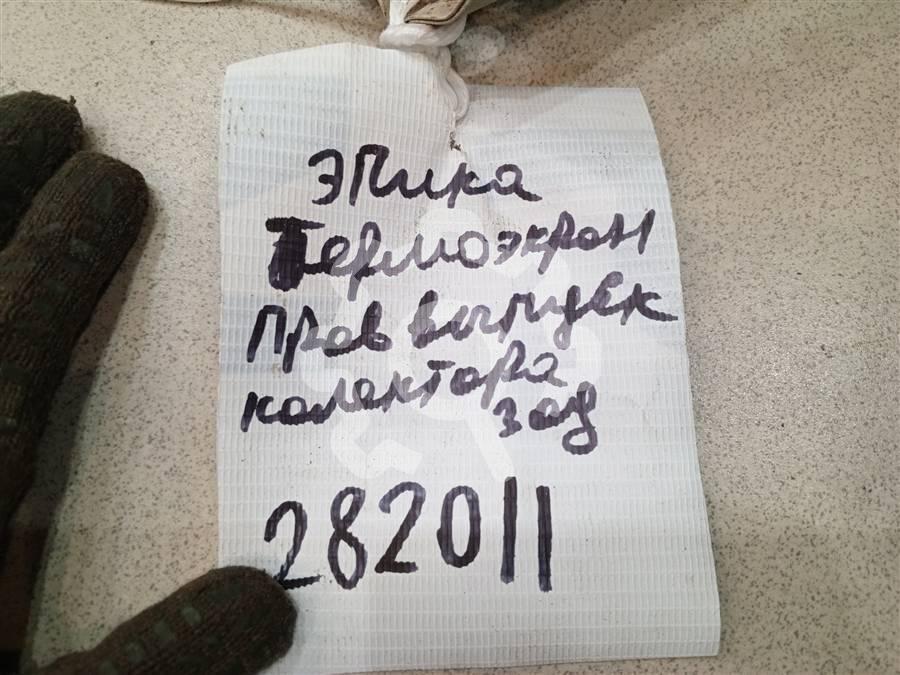 Эпика
Термоэкран
прав выпуск
колектора
зад
282011